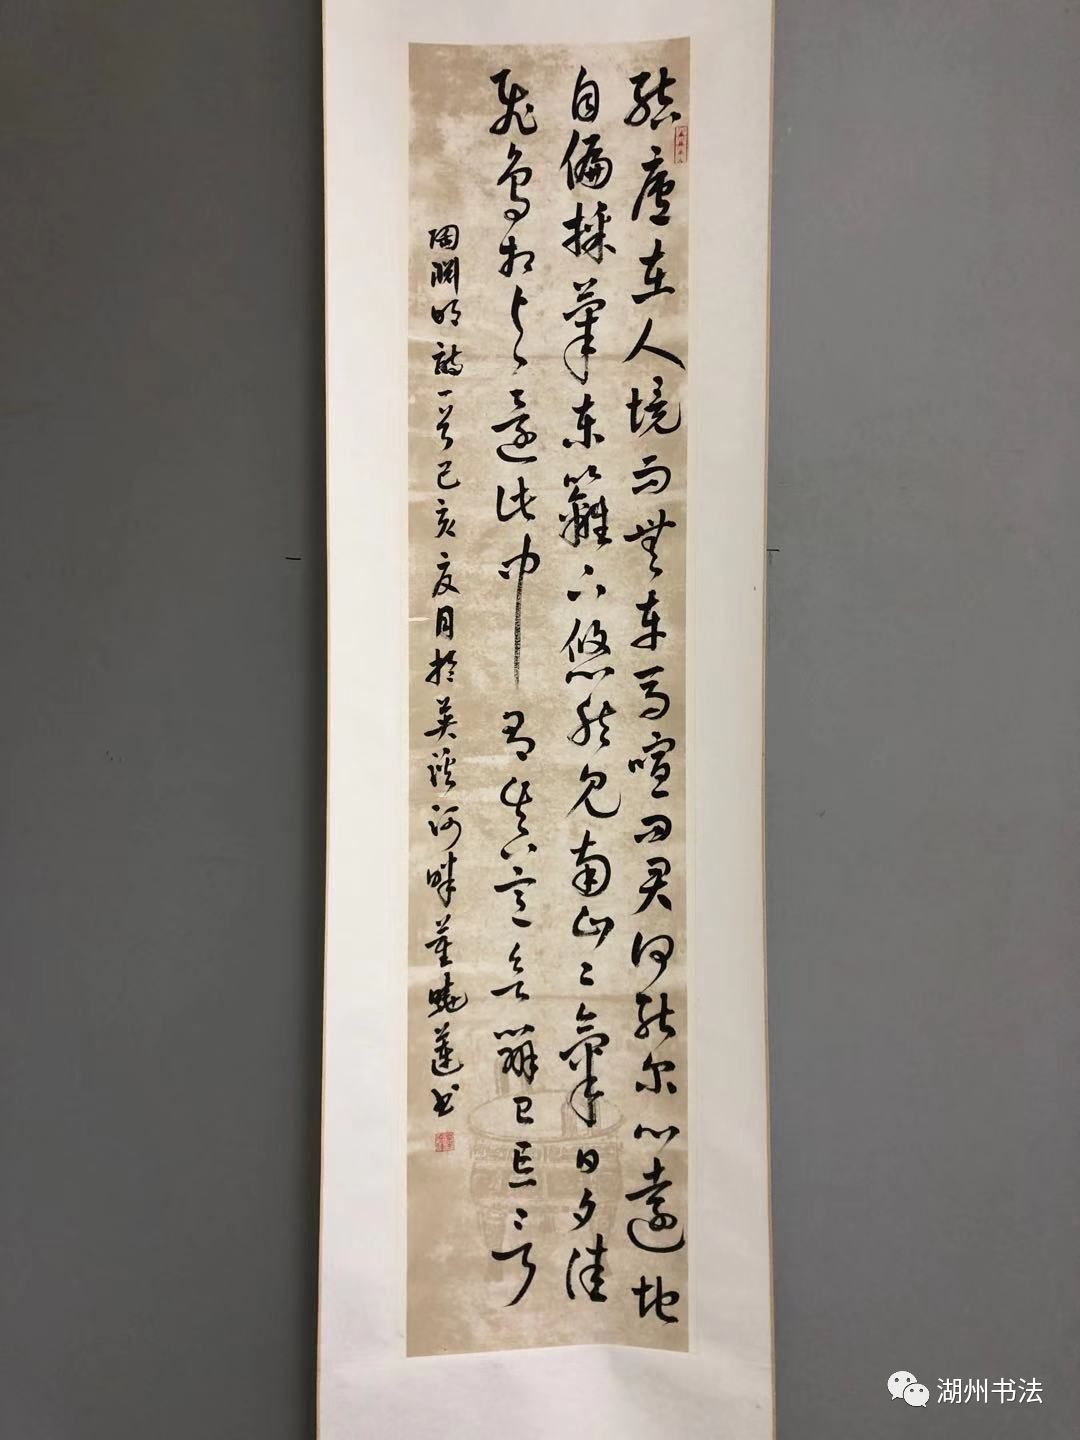 結廬在人境而無車馬喧問君何能尔心遠地
自偏採菊東籬下悠然見南山山氣日夕佳
飛鳥相与還此中有真意欲辯已忘言
陶渊明詩一首己亥夏月於英溪河畔董曉蓮书
湖州书法